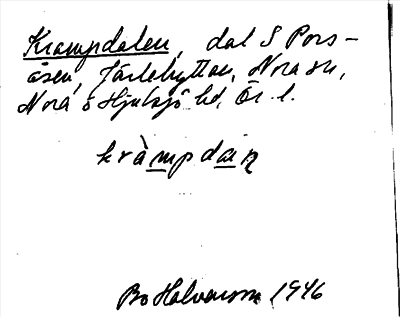 Krampdalen, dal S Pors-
åsen, Järlehyttan, Nora sn,
Nora o Hjulsjö hd, Ör. l.
kràmpdaįn
Bo Halvarson 1946